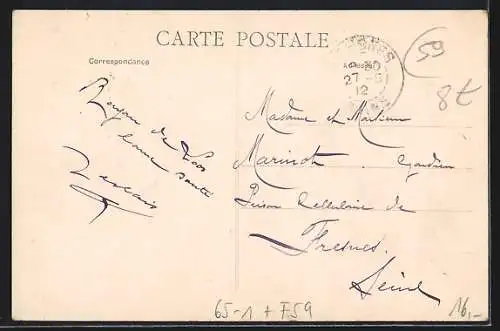 CARTE POSTALE
Correspondance
Adresse
27
12
59
8€
Bonjour de Loos
bonne santé
Madame et Monsieur
Marinot, Gardien
Prison Cellulaire de
Fresnes.
Seine
65-1 + F59
16,-